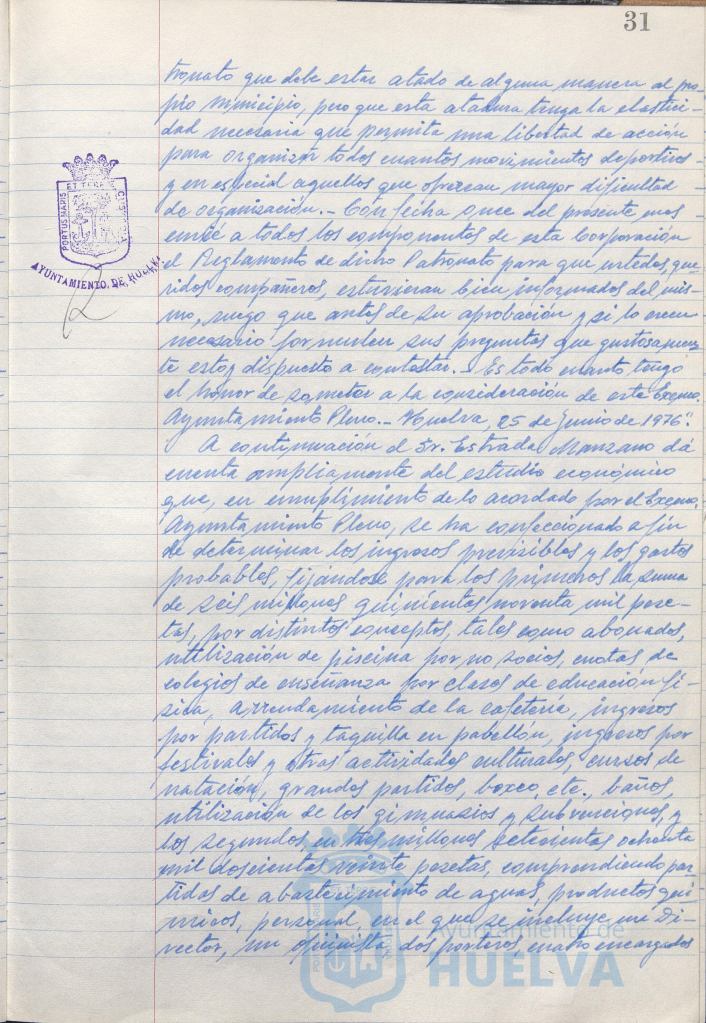 31
tronato que debe estar atado de alguna manera al pro-
pio Municipio, pero que esta atadura tenga la elastici-
dad necesaria que permita una libertad de acción
para organizar todos cuantos movimientos deportivos
y en especial aquellos que ofrezcan mayor dificultad
de organización.- Con fecha once del presente mes
envié a todos los componentes de esta Corporación
el Reglamento de dicho Patronato para que ustedes, que-
ridos compañeros, estuvieran bien informados del mis-
mo, ruego que antes de su aprobación y si lo creen
necesario formulen sus preguntas que gustosamen-
te estoy dispuesto a contestar.- Es todo cuanto tengo
el honor de someter a la consideración de este Excmo.
Ayuntamiento Pleno.- Huelva, 25 de Junio de 1976".
A continuación el Sr. Estrada Manzano dá
cuenta ampliamente del estudio económico
que, en cumplimiento de lo acordado por el Excmo.
Ayuntamiento Pleno, se ha confeccionado a fin
de determinar los ingresos previsibles y los gastos
probables, fijándose para los primeros la suma
de seis millones quinientas noventa mil pese-
tas, por distintos conceptos, tales como abonados,
utilización de piscina por no socios, cuotas de
colegios de enseñanza por clases de educación fí-
sica, arrendamiento de la cafetería, ingresos
por partidos y taquilla en pabellón, ingresos por
festivales y otras actividades culturales, cursos de
natación, grandes partidos, boxeo, etc., baños,
utilización de los gimnasios y subvenciones, y
los segundos en tres millones setecientas ochenta
mil doscientas veinte pesetas, comprendiendo par-
tidas de abastecimiento de aguas, productos quí-
micos, personal, en el que se incluye un Di-
rector, un oficinista, dos porteros, cuatro encargados
PORTUS MARIS ET TERRAE CUSTODIA
AYUNTAMIENTO DE HUELVA
Ayuntamiento de
HUELVA